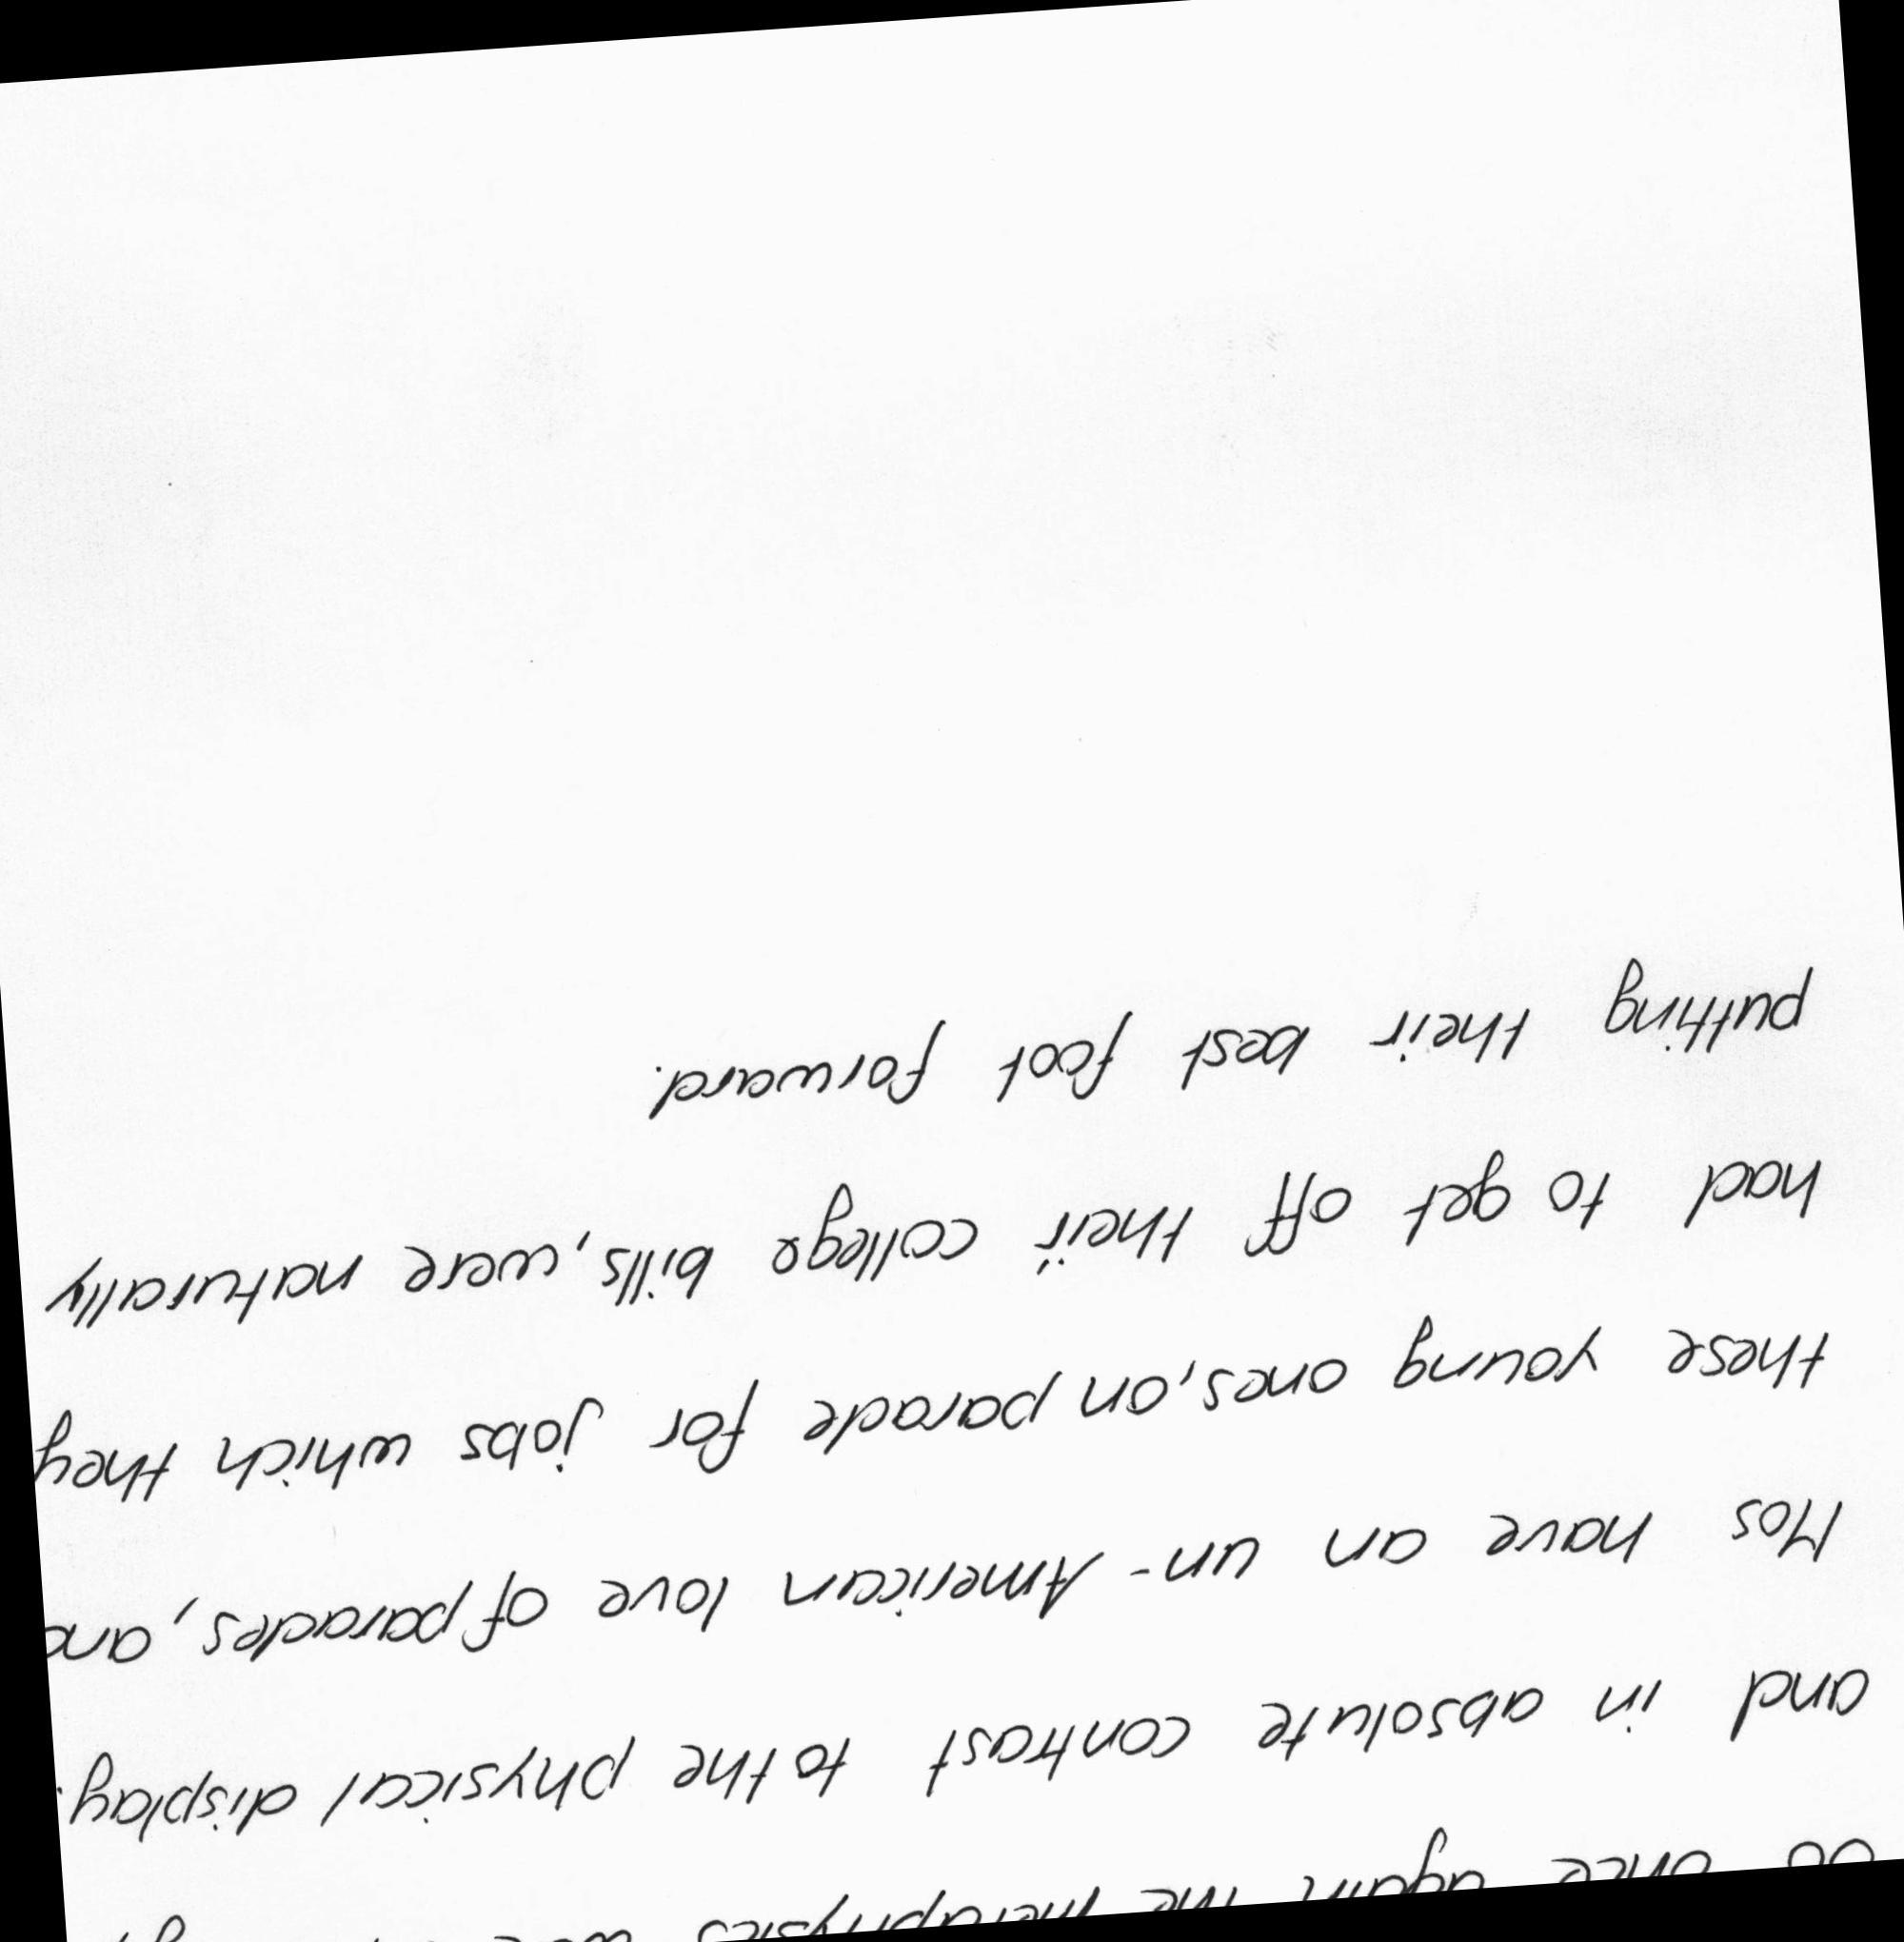 once again the metaphysics
and in absolute contrast to the physical display.
Mos have an un-American love of parades, and
these young ones, on parade for jobs which they
had to get off their college bills, were naturally
putting their best foot forward.